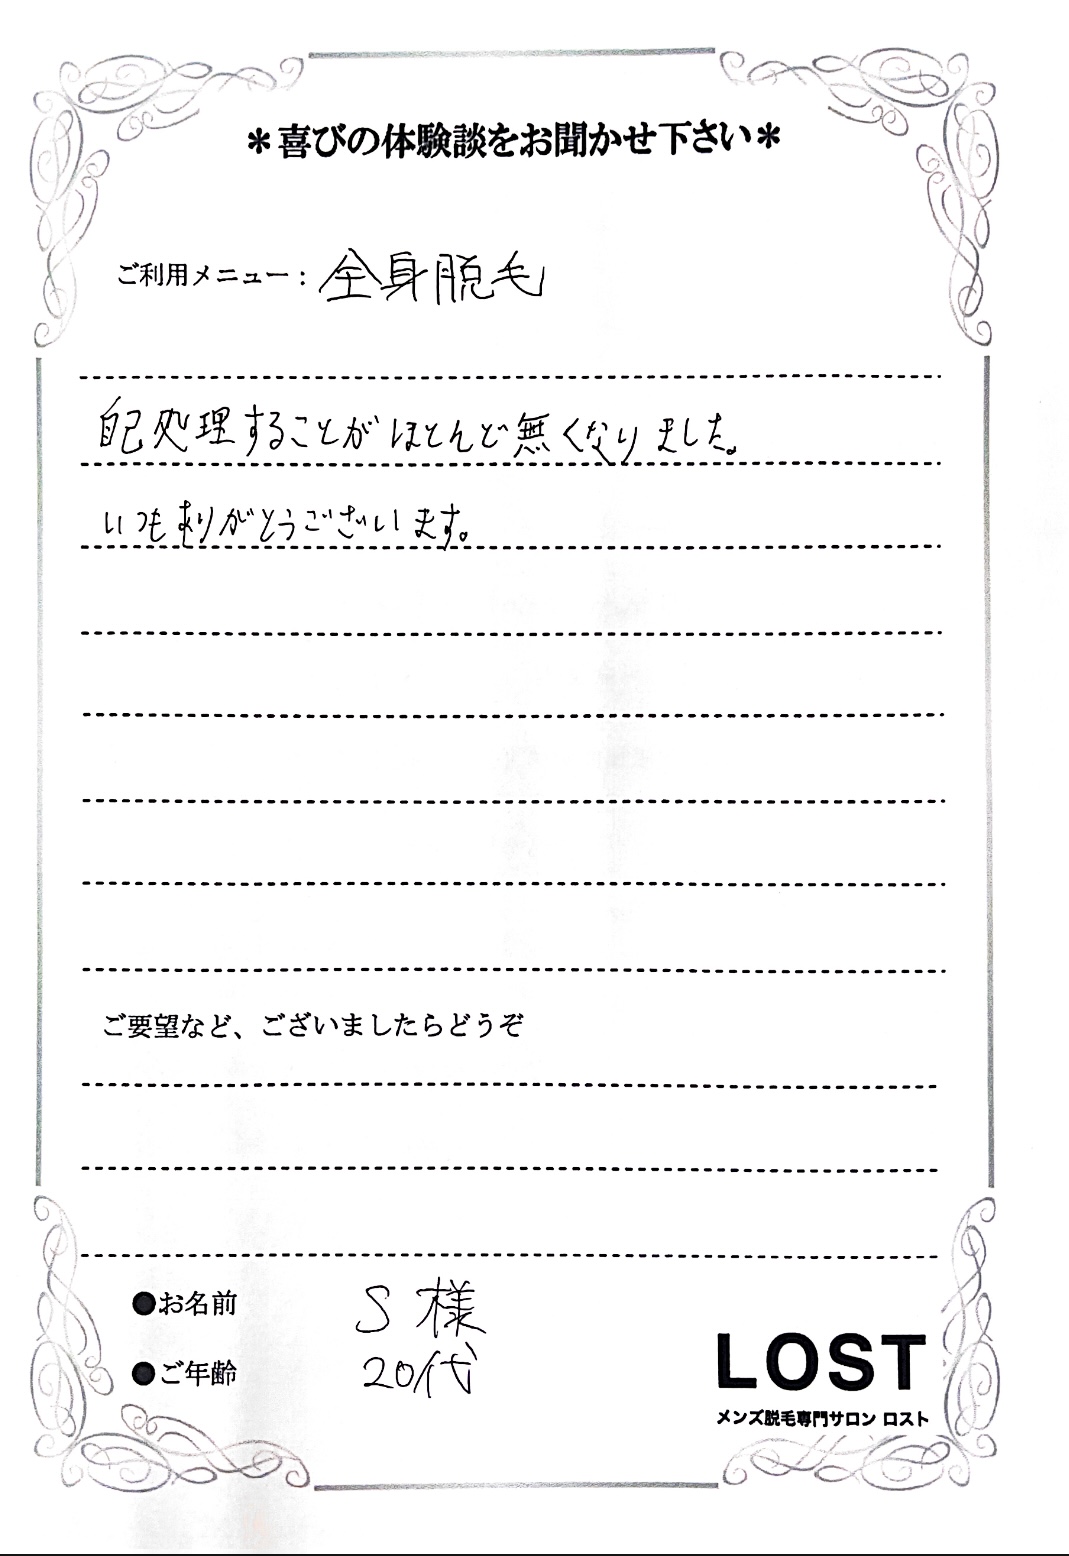 ＊喜びの体験談をお聞かせ下さい＊
ご利用メニュー：全身脱毛
自己処理することがほとんど無くなりました。
いつもありがとうございます。
ご要望など、ございましたらどうぞ
●お名前　S様
●ご年齢　20代
LOST
メンズ脱毛専門サロン ロスト